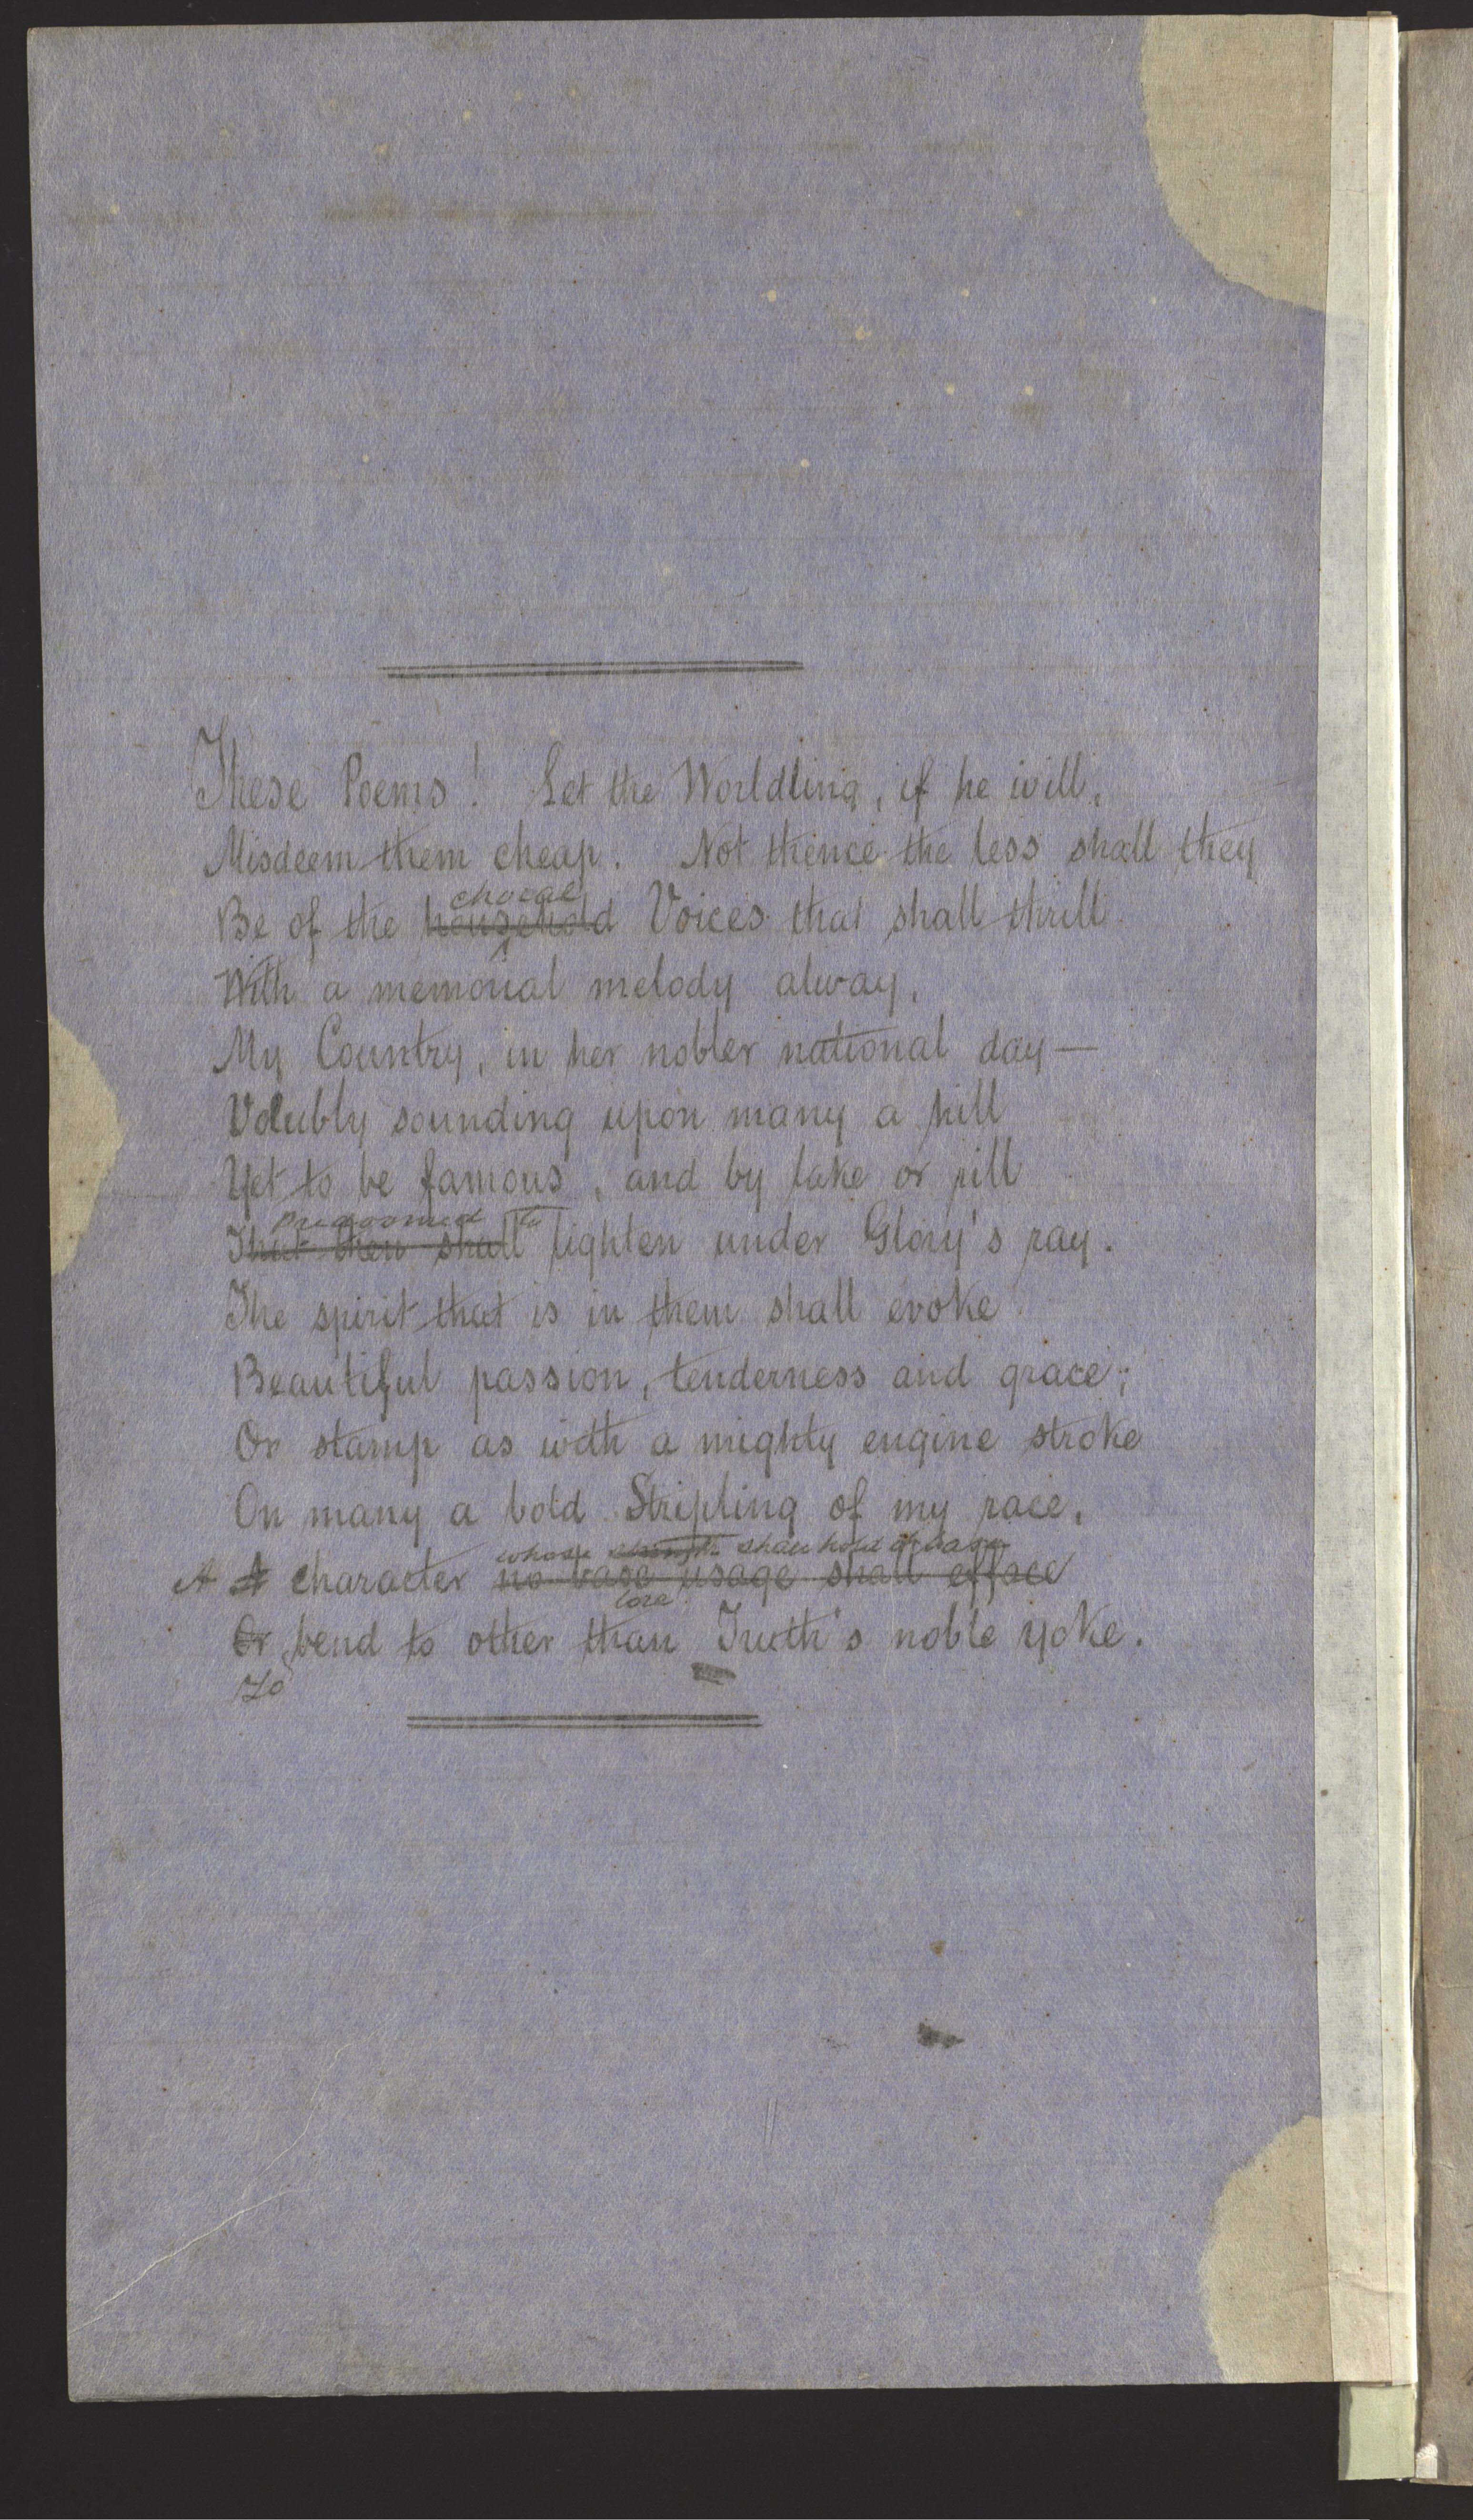 These Poems! Let the Worldling, if he will,
Misdeem them cheap. Not thence the less shall they
choral
Be of the household Voices that shall thrill
With a memorial melody alway,
My Country, in her nobler national day—
Volubly sounding upon many a hill
Yet to be famous, and by lake or rill
predoomed to
That then shall lighten under Glory's ray.
The spirit that is in them shall evoke
Beautiful passion, tenderness and grace;
Or stamp as with a mighty engine stroke
On many a bold Stripling of my race,
whose strength shall hold it base
A A Character no base usage shall efface
lore
Or bend to other than Truth's noble yoke.
To